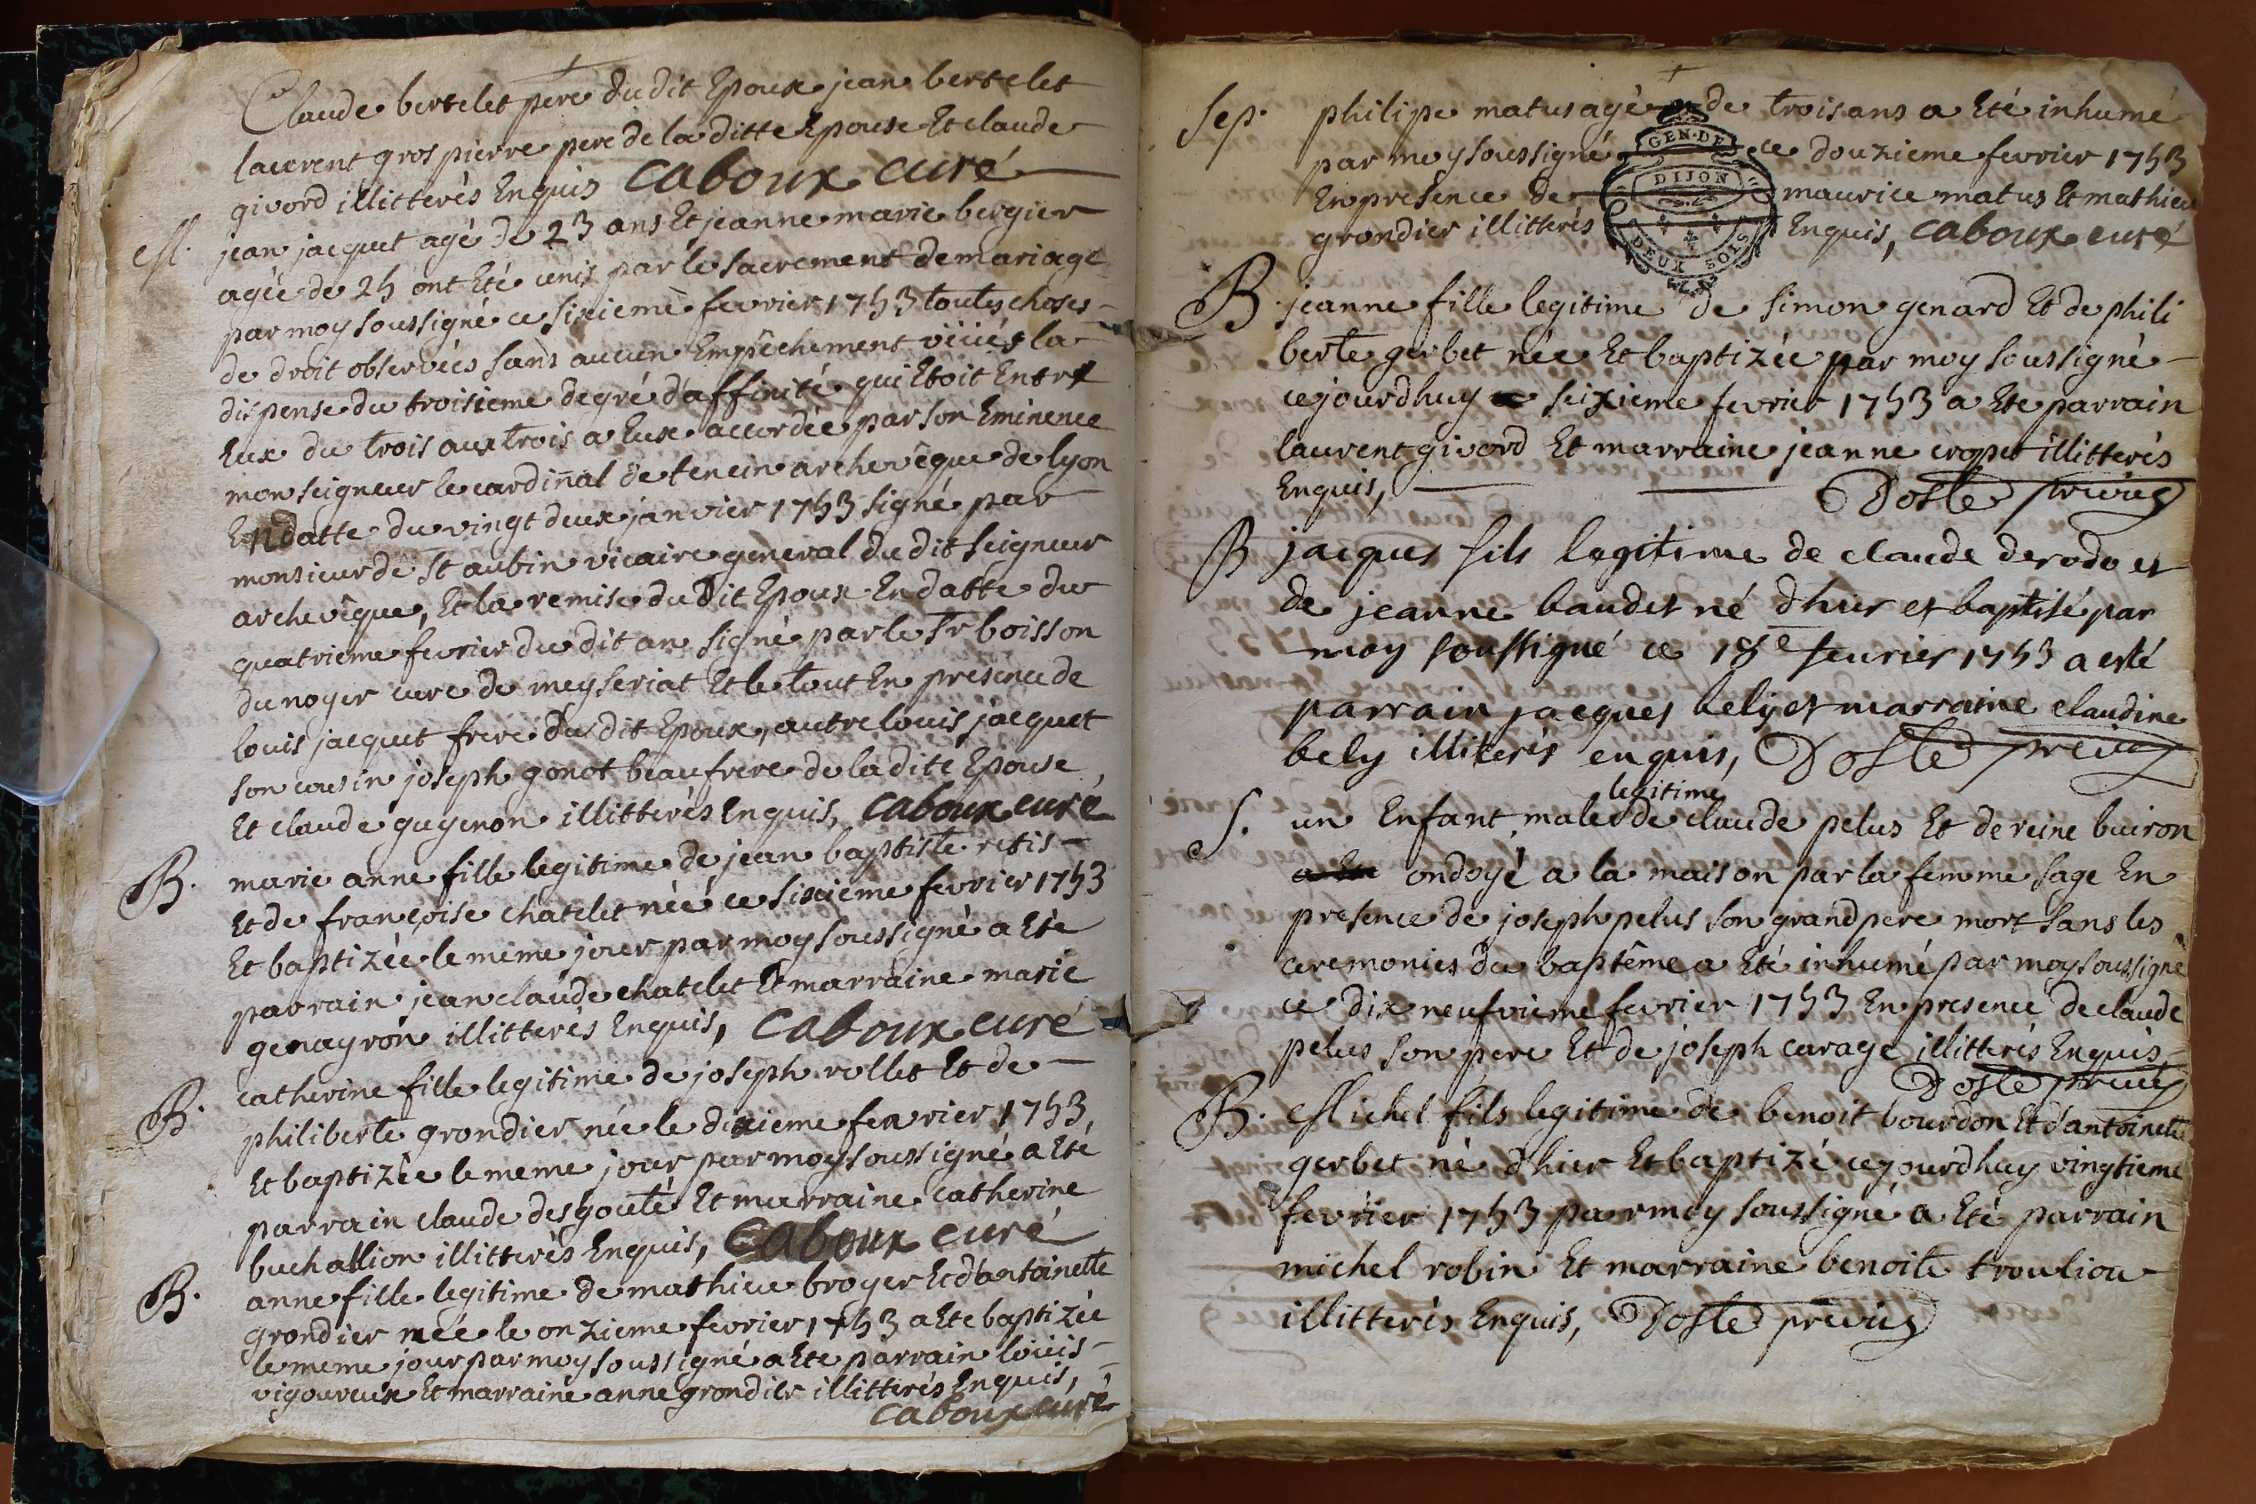 Claude bertelet pere du dit Epoux jean bertelet
laurent gros pierre pere de la ditte Epouse Et claude
givord illitterés Enquis caboux curé
M. jean jacquet agé de 23 ans Et jeanne marie bergier
agée de 25 ont Eté unis par le sacrement de mariage
par moy soussigné ce sixieme fevrier 1753 toutes choses
de droit observées sans aucun Empêchement la
dispense du troisieme degré d'affinité qui Etoit Entre
Eux du trois aux trois a Eux accordée par son Eminence
monseigneur le cardinal de tencin archevêque de lyon
En datte du vingt deux janvier 1753 signé par
monsieur de St aubin vicaire general du dit seigneur
archevêque, Et la remise du dit Epoux En datte du
quatrieme fevrier du dit an signé par le Sr boisson
du noyer curé de meyseriat Et le tout En presence de
louis jacquet frere du dit Epoux, autre louis jacquet
son cousin joseph gonot beaufrere de la dite Epouse
Et claude guyenon illitterés Enquis, caboux curé
B. marie anne fille legitime de jean baptiste retis
Et de françoise chatelet née ce sixieme fevrier 1753
Et baptizée le même jour par moy soussigné a Eté
parrain jean claude chatelet Et marraine marie
genayron illitterés Enquis, caboux curé
B. catherine fille legitime de joseph rollet Et de
philiberte grondier née le dixieme fevrier 1753
Et baptizée le meme jour par moy soussigné a Eté
parrain claude desgouté Et marraine catherine
buchallion illitterés Enquis, caboux curé
B. anne fille legitime de mathieu broyer Et d'antoinette
grondier née le onzieme fevrier 1753 a Eté baptizée
le meme jour par moy soussigné a Eté parrain louis
vigoureux Et marraine anne grondier illitterés Enquis,
caboux curé
Sep. philipe matus agé de trois ans a Eté inhumé
par moy soussigné ce douzieme fevrier 1753
En presence de maurice matus Et mathieu
grondier illitterés Enquis, caboux curé
GEN. DE
DIJON
DEUX SOLS
B. jeanne fille legitime de simon genard Et de phili
berte gerbet née Et baptizée par moy soussigné
cejourdhuy seizieme fevrier 1753 a Eté parrain
laurent givord Et marraine jeanne cropet illitterés
Enquis, Dosle
B jacques fils legitime de claude derodo et
de jeanne baudet né d'hier et baptisé par
moy soussigné ce 18e feurier 1753 a esté
parrain jacques bely et marraine claudine
bely illiterés enquis, Dosle
legitime
S. un Enfant male de claude pelus Et de reine buiron
ondoyé a la maison par la femme sage En
presence de joseph pelus son grand pere mort sans les
ceremonies du baptême a Eté inhumé par moy soussigné
ce dix neufvieme fevrier 1753 En presence de claude
pelus son pere Et de joseph carage illitterés Enquis
Dosle
B. Michel fils legitime de benoit bourdon Et d'antoinette
gerbet né d'hier Et baptizé cejourdhuy vingtieme
fevrier 1753 par moy soussigné a Eté parrain
michel robin Et marraine benoite trouliou
illitterés Enquis, Dosle